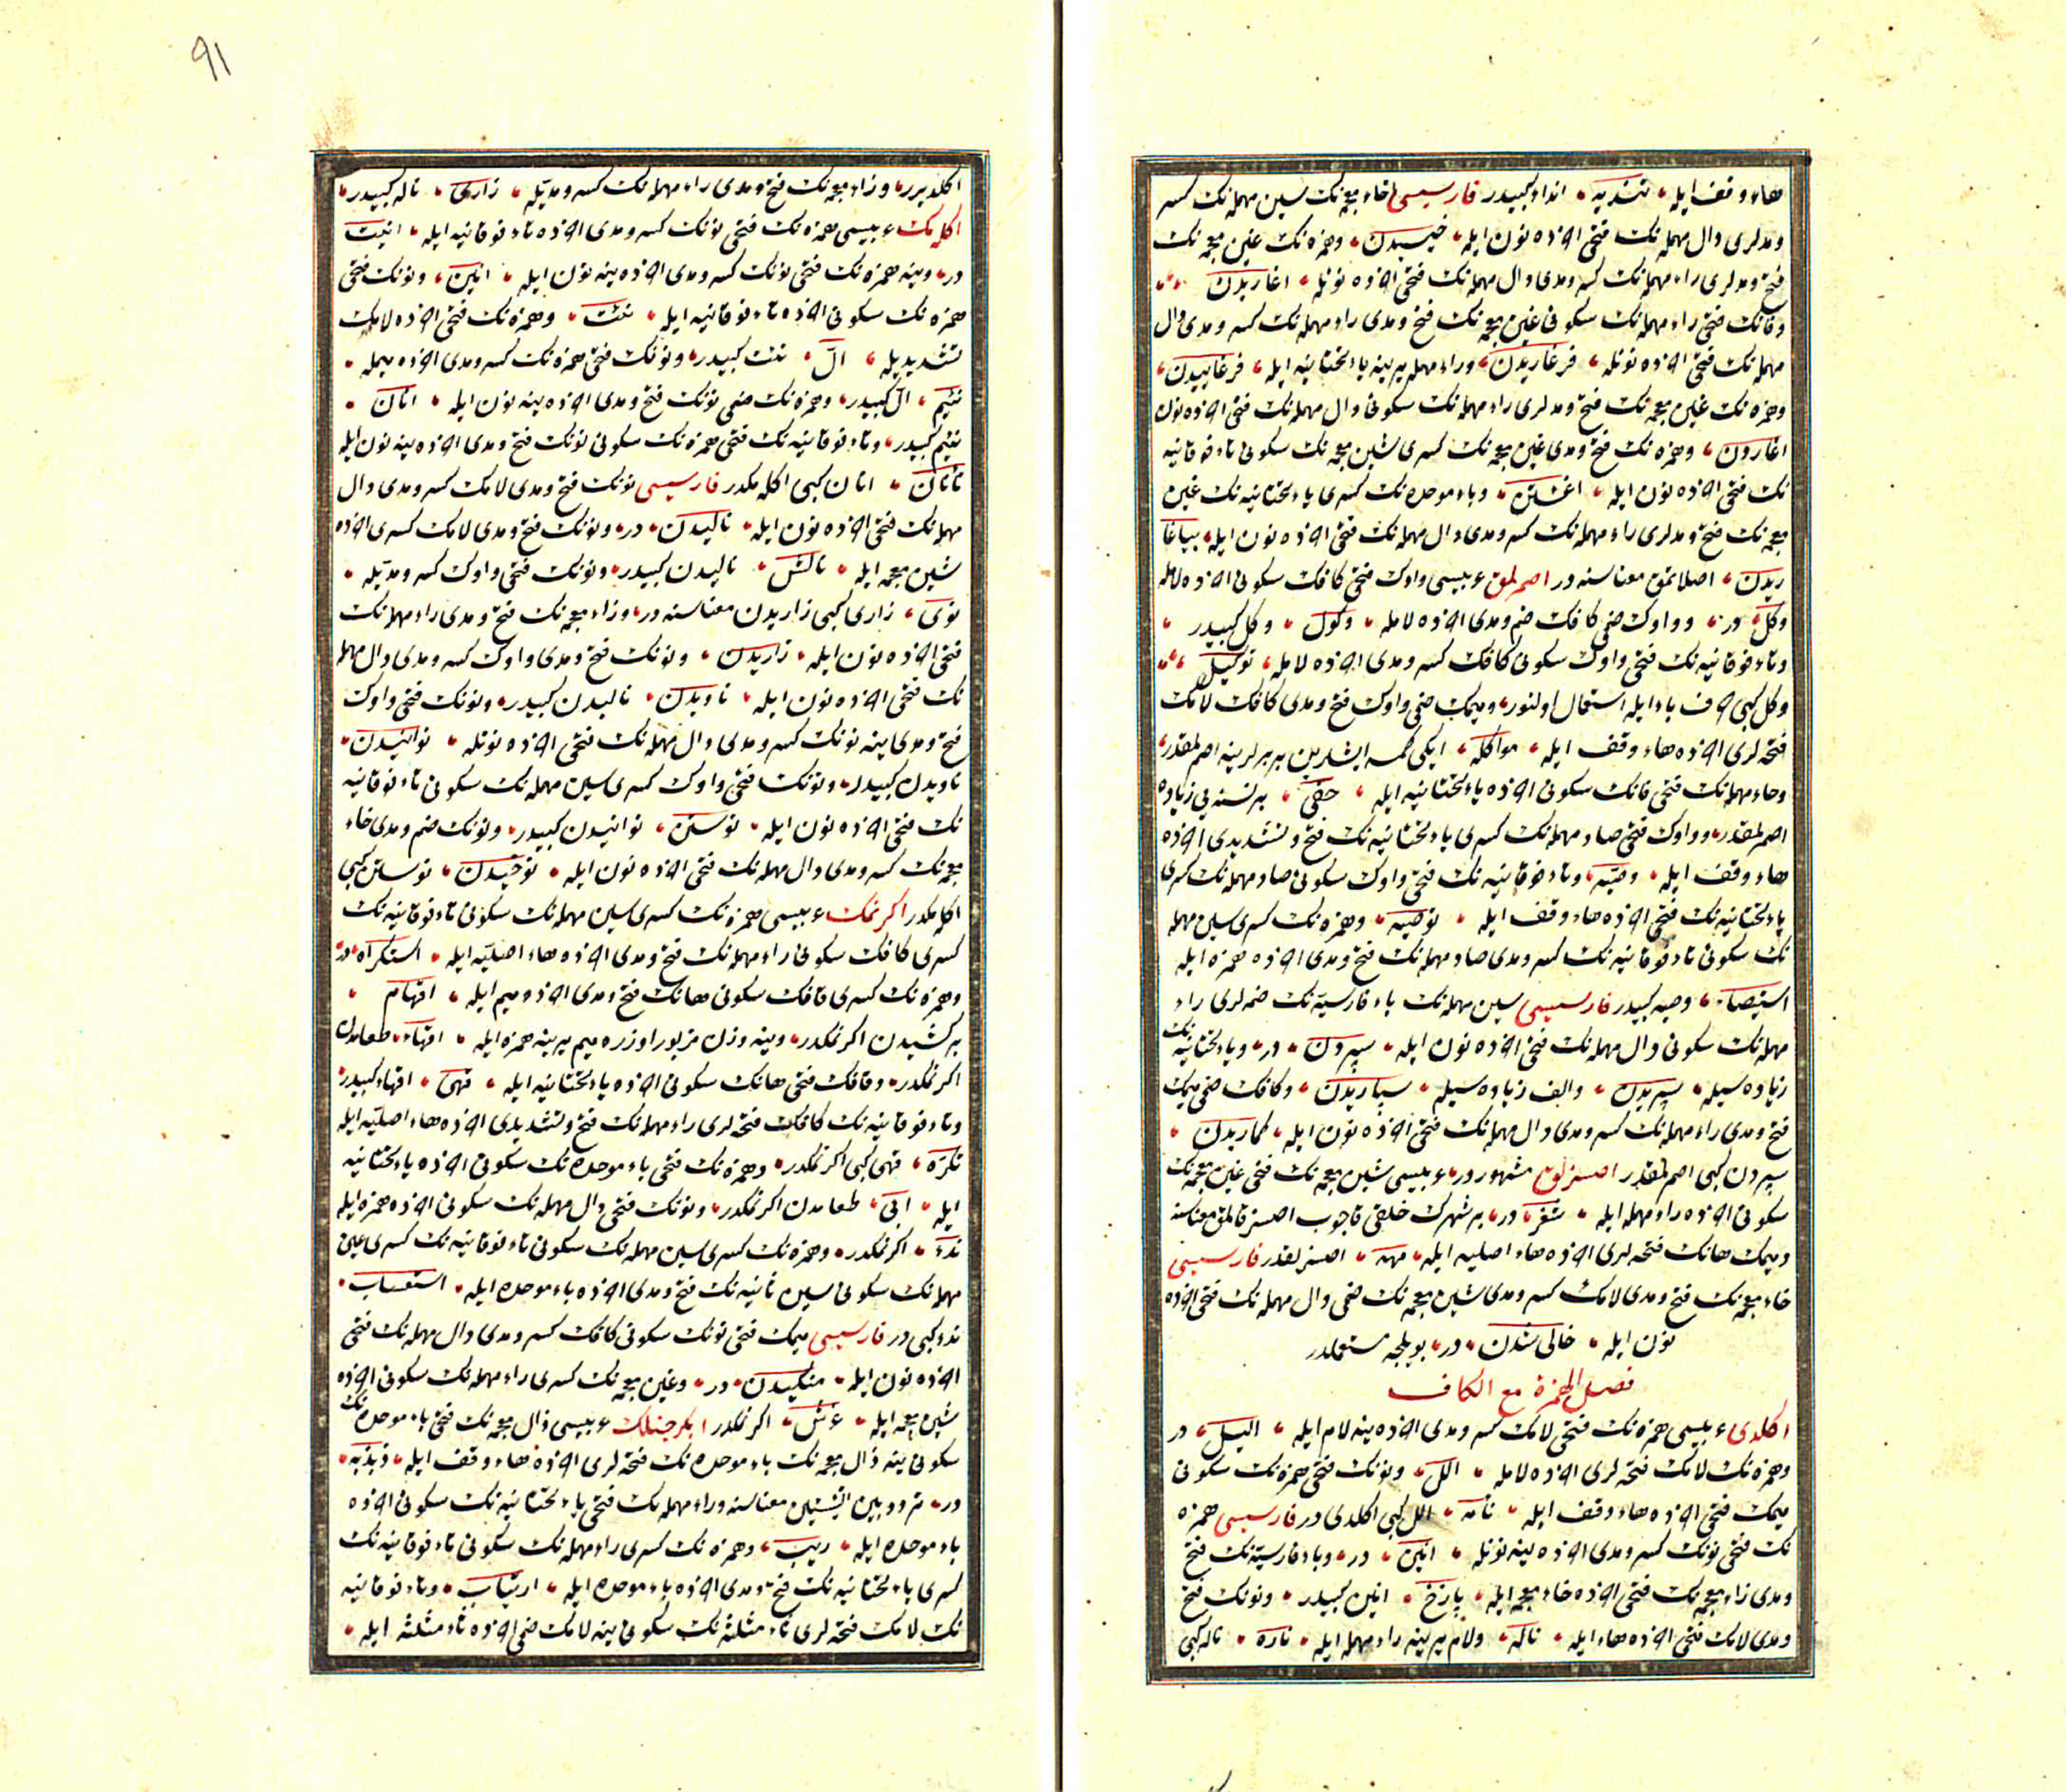 هاء وقف ايله تنديه انداء كبيدر فارسيسى خاء معجمه نك سين مهمله نك كسر
ومدلرى دال مهمله نك فتحى اخرده نون ايله خيسيدن وهمزه نك غين معجمه نك
فتح ومدلرى راء مهمله نك كسر ومدى دال مهمله نك فتحى اخرده نونله اغاريدن
وفانك فتحى راء مهمله نك سكونى غين معجمه نك فتح ومدى راء مهمله نك كسر ومدى دال
مهمله نك فتحى اخرده نونله فرغاريدن وراء مهمله يرينه ياء تحتانيه ايله فرغاييدن
وهمزه نك غين معجمه نك فتح ومدلرى راء مهمله نك سكونى دال مهمله نك فتحى اخرده نون
اغاردن وهمزه نك فتح ومدى غين معجمه نك كسرى شين معجمه نك سكونى تاء فوقانيه
نك فتحى اخرده نون ايله اغشتن وباء موحده نك كسرى ياء تحتانيه نك غين
معجمه نك فتح ومدلرى راء مهمله نك كسر ومدى دال مهمله نك فتحى اخرده نون ايله بياغا
ريدن اصلاتمق معناسنه در اصمرلمق عربيسى واوك فتحى كافك سكونى اخرده لامله
وكل در وواوك ضمى كافك ضم ومدى اخرده لامله وكول وكل كبيدر
وتاء فوقانيه نك فتحى واوك سكونى كافك كسر ومدى اخرده لامله توكيل
وكل كبى حرف باء ايله استعمال اولنور وميمك ضمى واوك فتح ومدى كافك لامك
فتحه لرى اخرده هاء وقف ايله مواكله ايكى كمسه ايشلرين بر برلرينه اصمرلمقدر
وحاء مهمله نك فتحى فانك سكونى اخرده ياء تحتانيه ايله حفى بر نسنه يى زياده
اصمرلمقدر وواوك فتحى صاد مهمله نك كسرى ياء تحتانيه نك فتح وتشديدى اخرده
هاء وقف ايله وصيه وتاء فوقانيه نك فتحى واوك سكونى صاد مهمله نك كسرى
ياء تحتانيه نك فتحى اخرده هاء وقف ايله توصيه وهمزه نك كسرى سين مهمله
نك سكونى تاء فوقانيه نك كسر ومدى صاد مهمله نك فتح ومدى اخرده همزه ايله
استيصاء وصيه كبيدر فارسيسى سين مهمله نك باء فارسيه نك ضمه لرى راء
مهمله نك سكونى دال مهمله نك فتحى اخرده نون ايله سپردن در وياء تحتانيه نك
زياده سيله سپريدن والف زياده سيله سپاريدن وكافك ضمى ميمك
فتح ومدى راء مهمله نك كسر ومدى دال مهمله نك فتحى اخرده نون ايله كماريدن
سپردن كبى اصمرلمقدر اصسزلق مشهوردر عربيسى شين معجمه نك فتحى غين معجمه نك
سكونى اخرده راء مهمله ايله شغر در بر شهرك خلقى قاچوب اصسز قالمق معناسنه
وميمك هانك فتحه لرى اخرده هاء اصليه ايله مهه اصسزلقدر فارسيسى
خاء معجمه نك فتح ومدى لامك كسر ومدى شين معجمه نك ضمى دال مهمله نك فتحى اخرده
نون ايله خالى شدن در بويلجه مستعملدر
فصل الهمزة مع الكاف
اكلدى عربيسى همزه نك فتحى لامك كسر ومدى اخرده ينه لام ايله اليل در
وهمزه نك لامك فتحه لرى اخرده لامله الل ونونك فتحى همزه نك سكونى
ميمك فتحى اخرده هاء وقف ايله نأمه الل كبى اكلدى در فارسيسى همزه
نك فتحى نونك كسر ومدى اخرده ينه نونله انين در وباء فارسيه نك فتح
ومدى زاء معجمه نك فتحى اخرده خاء معجمه ايله پازخ انين كبيدر ونونك فتح
ومدى لامك فتحى اخرده هاء ايله ناله ولام يرينه راء مهمله ايله ناره ناله كبى
٩١
اكلديرر وزاء معجمه نك فتح ومدى راء مهمله نك كسر ومديله زارى ناله كبيدر
اكلمك عربيسى همزه نك فتحى نونك كسر ومدى اخرده تاء فوقانيه ايله انيت
در وينه همزه نك فتحى نونك كسر ومدى اخرده ينه نون ايله انين ونونك فتحى
همزه نك سكونى اخرده تاء فوقانيه ايله نئت وهمزه نك فتحى اخرده لامك
تشديديله ال نئت كبيدر ونونك فتحى همزه نك كسر ومدى اخرده ميمله
نئيم ال كبيدر وهمزه نك ضمى نونك فتح ومدى اخرده ينه نون ايله انان
نئيم كبيدر وتاء فوقانيه نك فتحى همزه نك سكونى نونك فتح ومدى اخرده ينه نون ايله
تأنان انان كبى اكلمكدر فارسيسى نونك فتح ومدى لامك كسر ومدى دال
مهمله نك فتحى اخرده نون ايله ناليدن در ونونك فتح ومدى لامك كسرى اخرده
شين معجمه ايله نالش ناليدن كبيدر ونونك فتحى واوك كسر ومديله
نوى زارى كبى زاريدن معناسنه در وزاء معجمه نك فتح ومدى راء مهمله نك
فتحى اخرده نون ايله زاريدن ونونك فتح ومدى واوك كسر ومدى دال مهمله
نك فتحى اخرده نون ايله ناويدن ناليدن كبيدر ونونك فتحى واوك
فتح ومدى ينه نونك كسر ومدى دال مهمله نك فتحى اخرده نونله نوانيدن
ناويدن كبيدر ونونك فتحى واوك كسرى سين مهمله نك سكونى تاء فوقانيه
نك فتحى اخرده نون ايله نوستن نوانيدن كبيدر ونونك ضم ومدى خاء
معجمه نك كسر ومدى دال مهمله نك فتحى اخرده نون ايله نوخيدن نوستن كبى
اكلمكدر اكرنمك عربيسى همزه نك كسرى سين مهمله نك سكونى تاء فوقانيه نك
كسرى كافك سكونى راء مهمله نك فتح ومدى اخرده هاء اصليه ايله استكراه در
وهمزه نك كسرى قافك سكونى هانك فتح ومدى اخرده ميم ايله اقهام
بركشيدن اكرنمكدر وينه وزن مزبور اوزره ميم يرينه همزه ايله اقهاء طعامدن
اكرنمكدر وقافك فتحى هانك سكونى اخرده ياء تحتانيه ايله قهى اقهاء كبيدر
وتاء فوقانيه نك كافك فتحه لرى راء مهمله نك فتح وتشديدى اخرده هاء اصليه ايله
تكره قهى كبى اكرنمكدر وهمزه نك فتحى باء موحده نك سكونى اخرده ياء تحتانيه
ايله ابى طعامدن اكرنمكدر ونونك فتحى دال مهمله نك سكونى اخرده همزه ايله
ندء اكرنمكدر وهمزه نك كسرى سين مهمله نك سكونى تاء فوقانيه نك كسرى عين
مهمله نك سكونى سين ثانيه نك فتح ومدى اخرده باء موحده ايله استعساب
ندء كبى در فارسيسى ميمك فتحى نونك سكونى كافك كسر ومدى دال مهمله نك فتحى
اخرده نون ايله منكيدن در وغين معجمه نك كسرى راء مهمله نك سكونى اخرده
شين معجمه ايله غرش اكرنمكدر عربيسى ذال معجمه نك فتحى باء موحده نك
سكونى ينه ذال معجمه نك باء موحده نك فتحه لرى اخرده هاء وقف ايله ذبذبه
در تردد بين الشيئين معناسنه وراء مهمله نك فتحى ياء تحتانيه نك سكونى اخرده
باء موحده ايله ريب وهمزه نك كسرى راء مهمله نك سكونى تاء فوقانيه نك
كسرى ياء تحتانيه نك فتح ومدى اخرده باء موحده ايله ارتياب وتاء فوقانيه
نك لامك فتحه لرى ثاء مثلثه نك سكونى ينه لامك ضمى اخرده ثاء مثلثه ايله